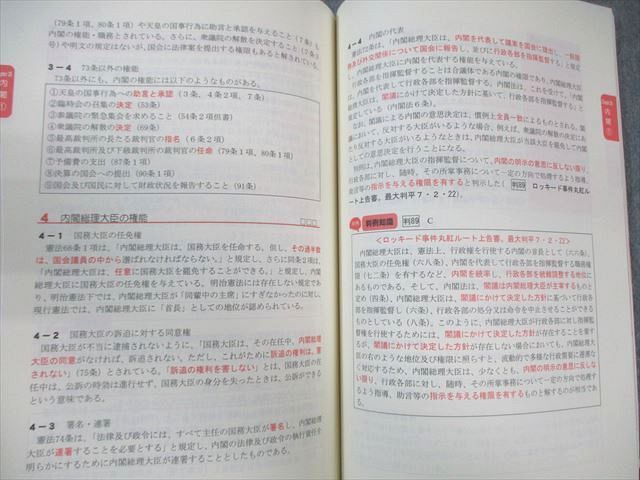 (79条1項,80条1項)や天皇の国事行為に助言と承認を与えること(7条)も
内閣の権能・職務とされている。さらに、衆議院の解散を決定すること(7条3
号)や明文の規定はないが、国会に法律案を提出する権限もあると解されている。
3-4 73条以外の権能
73条以外にも、内閣の権能には以下のようなものがある。
①天皇の国事行為への助言と承認(3条、4条2項、7条)
②臨時会の召集の決定(53条)
③参議院の緊急集会を求めること(54条2項但書)
④衆議院の解散の決定(69条)
⑤最高裁判所の長たる裁判官の指名(6条2項)
⑥最高裁判所及び下級裁判所の裁判官の任命(79条1項、80条1項)
⑦予備費の支出(87条1項)
⑧決算の国会への提出(90条1項)
⑨国会及び国民に対して財政状況を報告すること(91条)
4 内閣総理大臣の権能
4-1 国務大臣の任免権
憲法68条1項は、「内閣総理大臣は、国務大臣を任命する。但し、その過半数
は、国会議員の中から選ばれなければならない。」と規定し、さらに同条2項は
「内閣総理大臣は、任意に国務大臣を罷免することができる。」と規定し、内閣
総理大臣に国務大臣の任免権を与えている。明治憲法には存在しない規定であ
り、明治憲法下では、内閣総理大臣が「同輩中の主席」にすぎなかったのに対し、
現行憲法では、内閣総理大臣に「首長」としての地位が認められている。
4-2 国務大臣の訴追に対する同意権
国務大臣が不当に逮捕されないように、「国務大臣は、その在任中、内閣総理
大臣の同意がなければ、訴追されない。ただし、これがために訴追の権利は、害
されない」(75条)とされている。「訴追の権利を害しない」とは、国務大臣の在
任中は、公訴の時効は進行せず、国務大臣の身分を失ったときは、公訴ができる
という意味である。
4-3 署名・連署
憲法74条は、「法律及び政令には、すべて主任の国務大臣が署名し、内閣総理
大臣が連署することを必要とする」と規定し、内閣の法律及び政令の執行責任を
明らかにするために内閣総理大臣が連署することとしたものである。
内閣①
4-4 内閣の代表
憲法72条は、「内閣総理大臣は、内閣を代表して議案を国会に提出し、一般国
務及び外交関係について国会に報告し、並びに行政各部を指揮監督する」と規定
し、内閣総理大臣に内閣を代表する権能を与えている。
行政各部を指揮監督することは合議体である内閣の権限であり、内閣総理大臣
は、内閣を代表して行政各部を指揮監督する。内閣法は、これを受けて、「内閣
総理大臣は、閣議にかけて決定した方針に基いて、行政各部を指揮監督する」と
している(内閣法6条)。
なお、閣議による内閣の意思決定は、慣例上全員一致によるものとされる。閣
議において、反対する大臣がいるような場合、例えば、衆議院の解散の決定にあ
たり反対する大臣がいるような場合でも、内閣総理大臣が当該大臣を罷免して内閣
としての意思決定を行うことになる。
判例は、内閣総理大臣の指揮監督について、内閣の明示の意思に反しない限り、
行政各部に対し、随時、その所掌事務について一定の方向で処理するよう指導、
助言等の指示を与える権限を有すると判示した(判89 ロッキード事件丸紅ル
ート上告審、最大判平7・2・22)。
判例知識 判89 C
<ロッキード事件丸紅ルート上告審、最大判平7・2・22>
内閣総理大臣は、憲法上、行政権を行使する内閣の首長として(六六条)、
国務大臣の任免権(六八条)、内閣を代表して行政各部を指揮監督する職務権
限(七二条)を有するなど、内閣を統率し、行政各部を統轄調整する地位に
あるものである。そして、内閣法は、閣議は内閣総理大臣が主宰するものと
定め(四条)、内閣総理大臣は、閣議にかけて決定した方針に基いて行政各部
を指揮監督し(六条)、行政各部の処分又は命令を中止させることができる
ものとしている(八条)。このように、内閣総理大臣が行政各部に対し指揮監
督権を行使するためには、閣議にかけて決定した方針が存在することを要す
るが、閣議にかけて決定した方針が存在しない場合においても、内閣総理大
臣の右のような地位及び権限に照らすと、流動的で多様な行政需要に遅滞な
く対応するため、内閣総理大臣は、少なくとも、内閣の明示の意思に反しな
い限り、行政各部に対し、随時、その所掌事務について一定の方向で処理す
るよう指導、助言等の指示を与える権限を有するものと解するのが相当であ
る。
内閣①